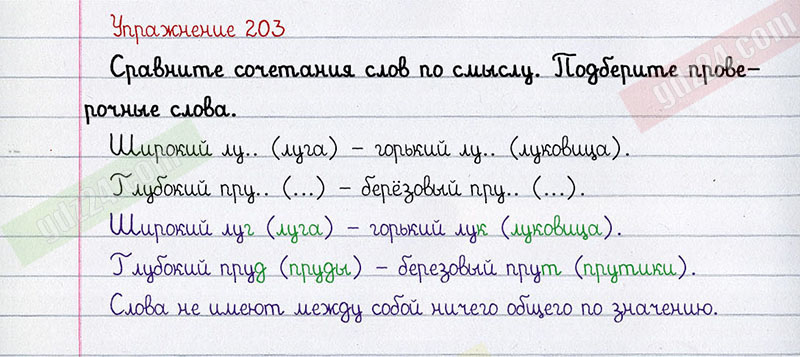 Упражнение 203
Сравните сочетания слов по смыслу. Подберите прове-
рочные слова.
Широкий лу.. (луга) – горький лу.. (луковица).
Глубокий пру.. (...) – берёзовый пру.. (...).
Широкий луг (луга) – горький лук (луковица).
Глубокий пруд (пруды) – березовый прут (прутики).
Слова не имеют между собой ничего общего по значению.
gdz24.com
gdz24.com